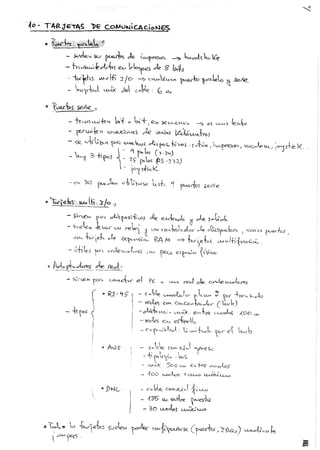 10 - TARJETAS DE COMUNICACIONES
• Puerto paralelo:
- suelen ser puertos de impresora → handshake
- transmiten datos en bloques de 8 bits
- tarjetas multi I/O → combinan puerto paralelo y serie
- longitud máx del cable: 6 m
• Puertos serie:
- transmiten bit a bit, en secuencia → es más lento
- permite conexiones de varios kilómetros
- se utilizan para muchos dispositivos: ratón, impresora, modem, joystick..
- hay 3 tipos
9 polos (V-24)
25 polos (RS-232)
joystick
- en DOS pueden utilizarse hasta 4 puertos serie
• Tarjetas multi I/O:
- Sirven para dispositivos de entrada y de salida
- suelen llevar un reloj y un controlador de disquetera, varios puertos,
una tarjeta de expansión RAM → tarjetas multifunción.
- útiles para ordenadores con poco espacio físico
• Adaptadores de red:
- sirven para conectar el PC a una red de ordenadores
- tipos
• RJ-45
- cable
- redes con concentrador (hub)
- máx entre nodos 100 m
- redes en estrella
- limitada por el hub
• AUI
- cable coaxial grueso
- tipología: bus
- máx 500 m entre nodos
- 100 nodos como máximo
• BNC
- cable coaxial fino
- 185 m entre puertos
- 30 nodos máximo
• Todas las tarjetas suelen poder configurarse (puertos, IRQs) mediante
jumpers.